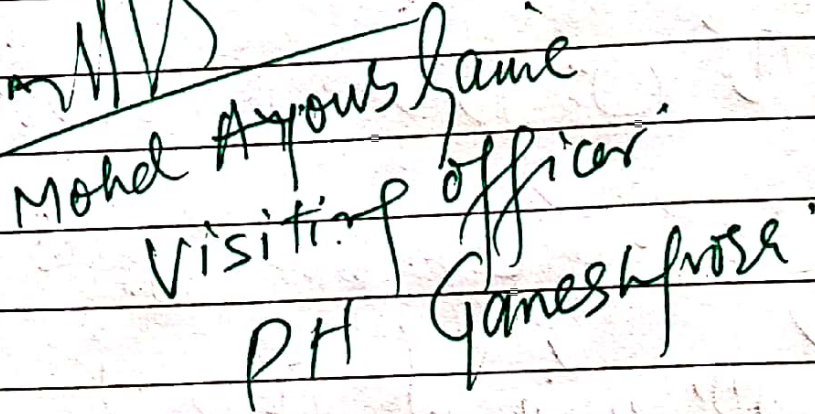 Mohd Ayoub Ganie
Visiting officer
PH Ganeshpora